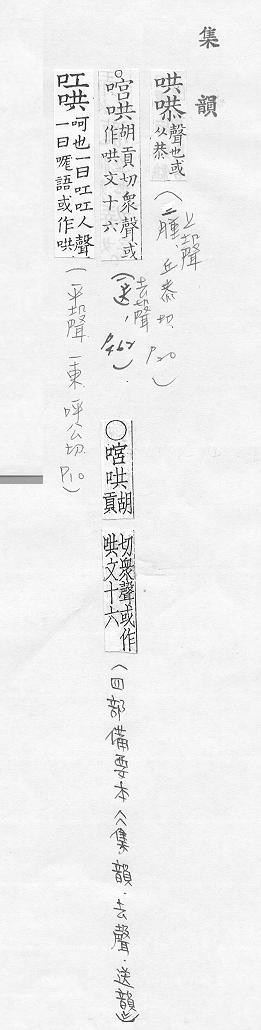 集韻
哄㗬聲也或
从恭
(上聲
二腫.丘恭切
P20)
○㗢哄胡貢切衆聲或
作哄文十六
(去聲
送,
P462)
吐哄呵也一曰吐吐人聲
一曰嚍語或作哄
(平聲 一東 呼公切 P10)
○㗢哄胡貢
切衆聲或作
哄文十六
(四部備要本《集韻.去聲.送韻》)